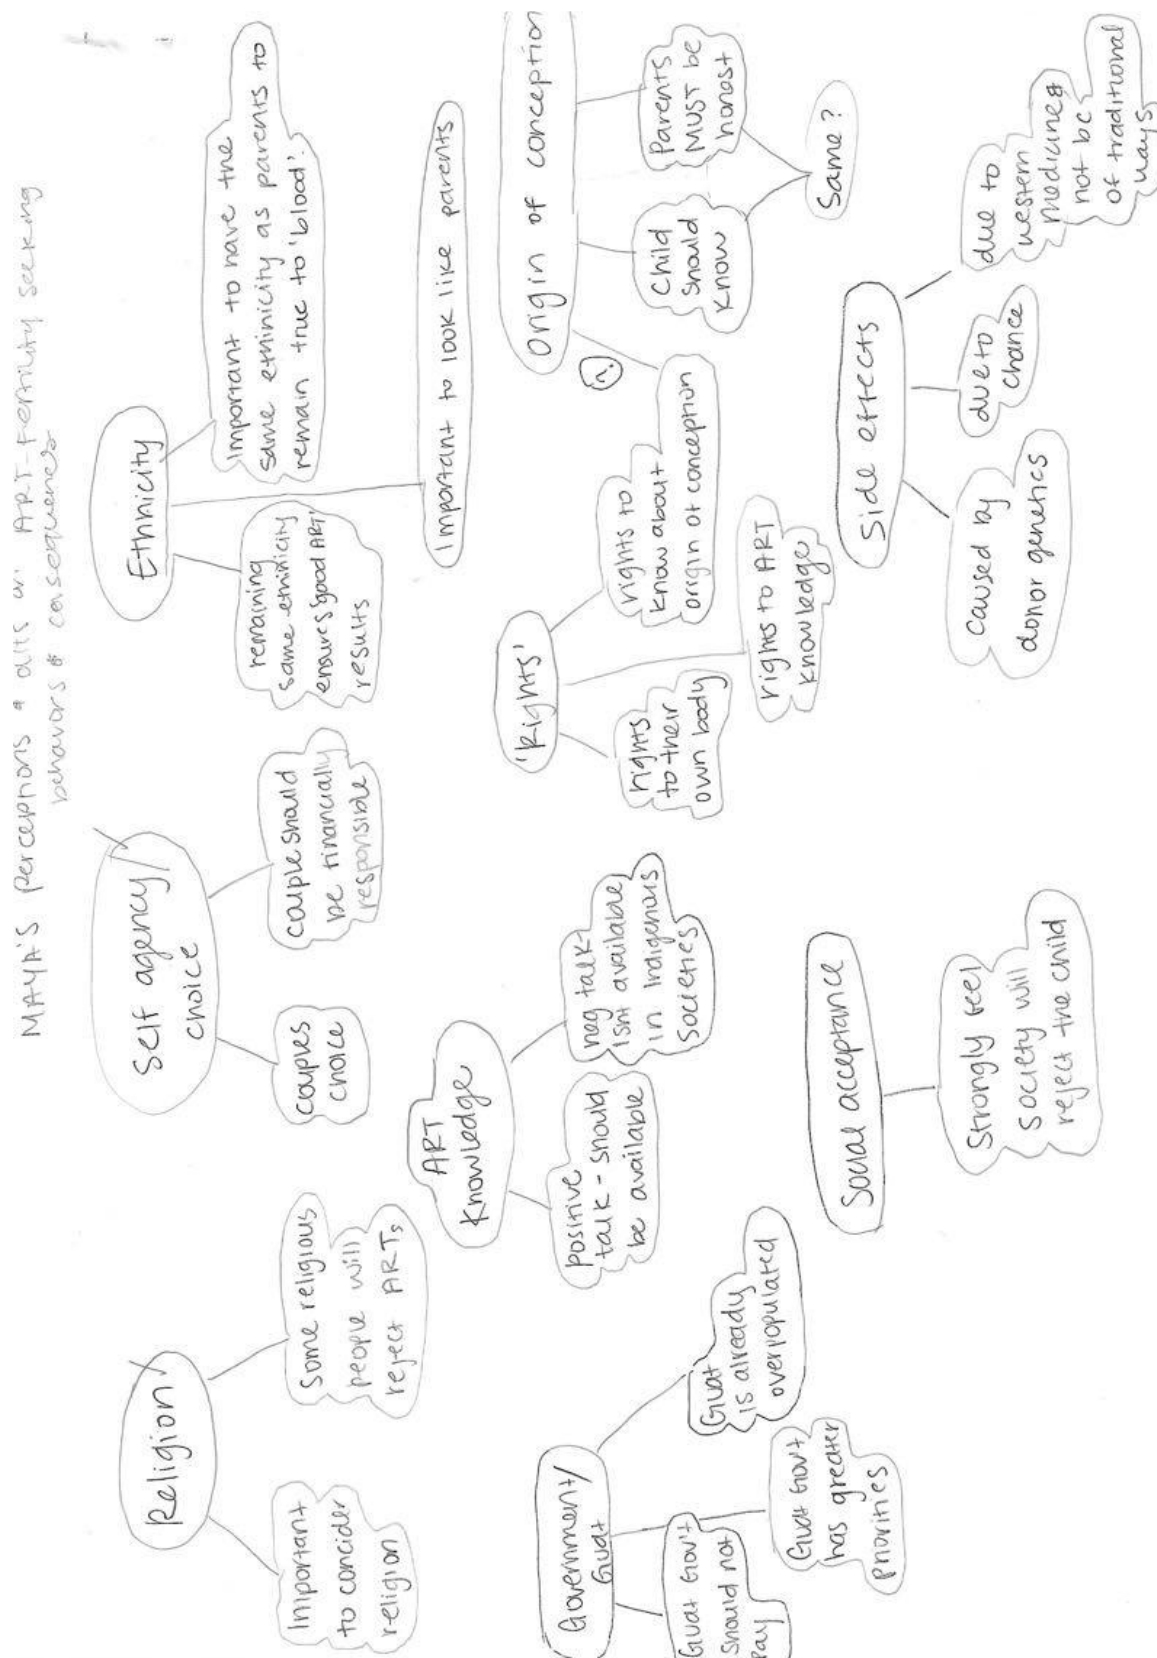 MAYA'S perceptions & ART-Fertility seeking
behavors & consequences
Religion
Important
to concider
religion
Some religious
people will
reject ARTs
Self agency/
choice
couples
choice
couple should
be financially
responsible
Ethnicity
remaining
same ethinicity
ensures 'good ART'
results
Important to look like parents
Important to have the
same ethinicity as parents to
remain true to 'blood'.
ART
Knowledge
positive
talk - should
be available
neg talk-
isnt available
in Indigenous
Societies
'Rights'
rights
to their
own body
rights to ART
knowledge
rights to
know about
origin of conception
?
Origin of conception
Child
should
know
Parents
MUST be
honest
Same?
Government/
Guat
Guat Gov't
should not
pay
Guat Gov't
has greater
priorities
Guat
is already
overpopulated
Social acceptance
Strongly feel
society will
reject the child
Side effects
caused by
donor genetics
due to
chance
due to
western
medicine &
not be
of traditional
ways